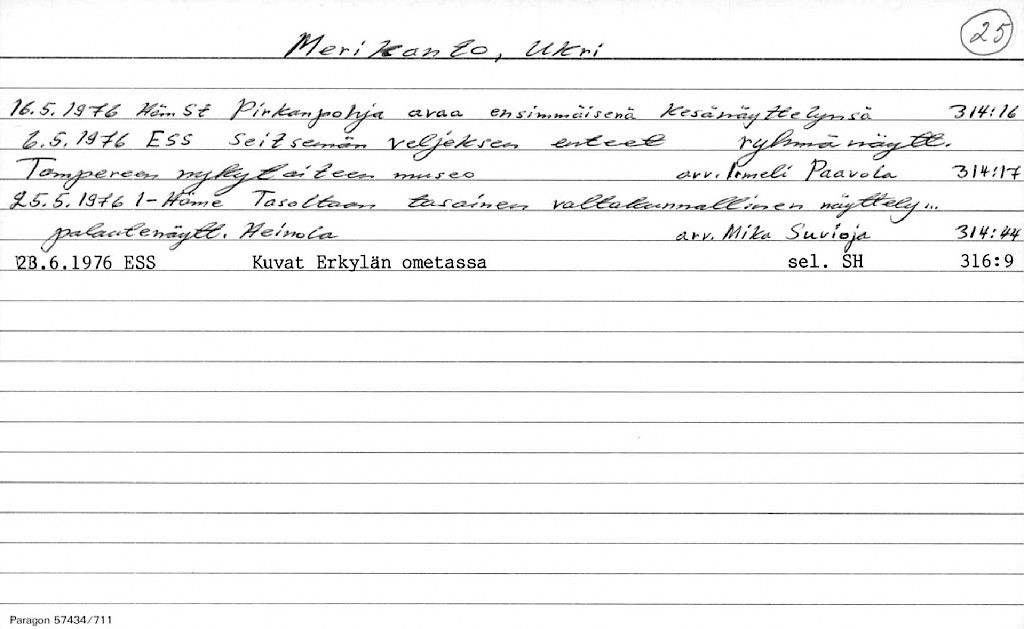 25
Merikanto, Ukri
16.5.1976 Häm St Pirkanpohja avaa ensimmäisenä Kesänäyttelynsä 314:16
6.5.1976 ESS Seitsemän veljeksen enteet ryhmänäytt.
Tampereen nykytaiteen museo arv. Irmeli Paavola 314:17
25.5.1976 I-Häme Tasoltaan tasainen valtakunnallinen näyttely...
palautenäytt. Heinola arv. Mika Suvioja 314:44
23.6.1976 ESS Kuvat Erkylän ometassa sel. SH 316:9
Paragon 57434/711